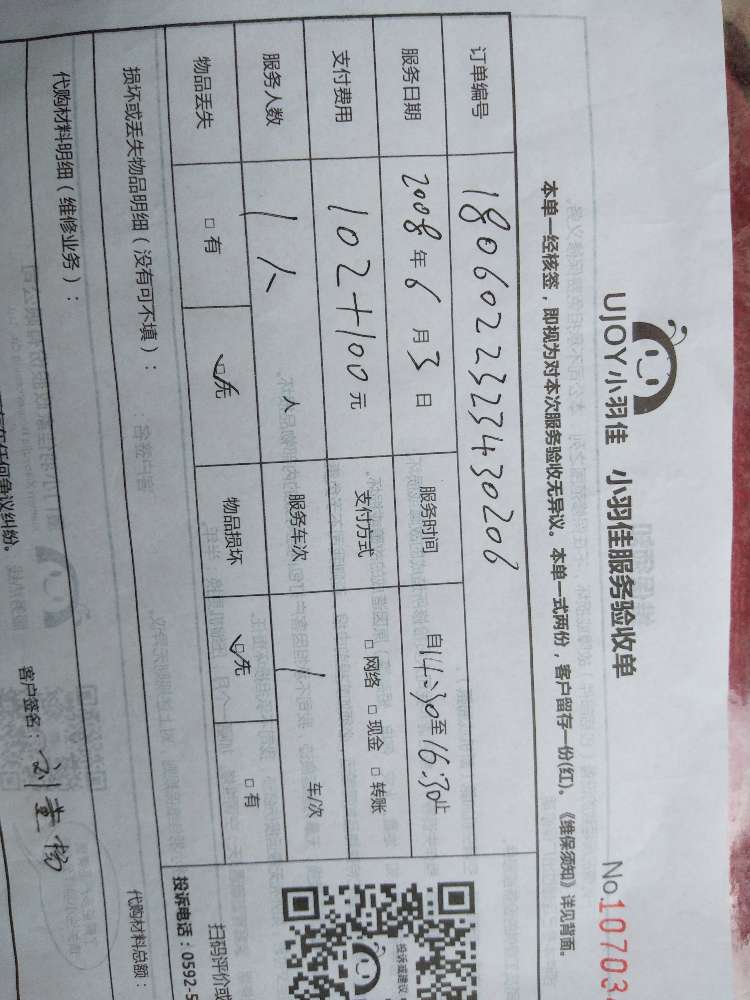 UJOY小羽佳 小羽佳服务验收单 No.10703
本单一经核签，即视为对本次服务验收无异议。本单一式两份，客户留存一份(红)。《维保须知》详见背面。
订单编号 1806022323430206
服务日期 2008年6月3日 服务时间 自14:30至16:30止
支付费用 102+100元 支付方式 □网络 □现金 □转账
服务人数 1人 人 服务车次 1 车/次
物品丢失 □有 ☑无 物品损坏 ☑无 □有
损坏或丢失物品明细（没有可不填）：
代购材料明细（维修业务）： 代购材料总额：
投诉或建议
扫码评价或
投诉电话：0592-5
任何争议纠纷。
客户签名：